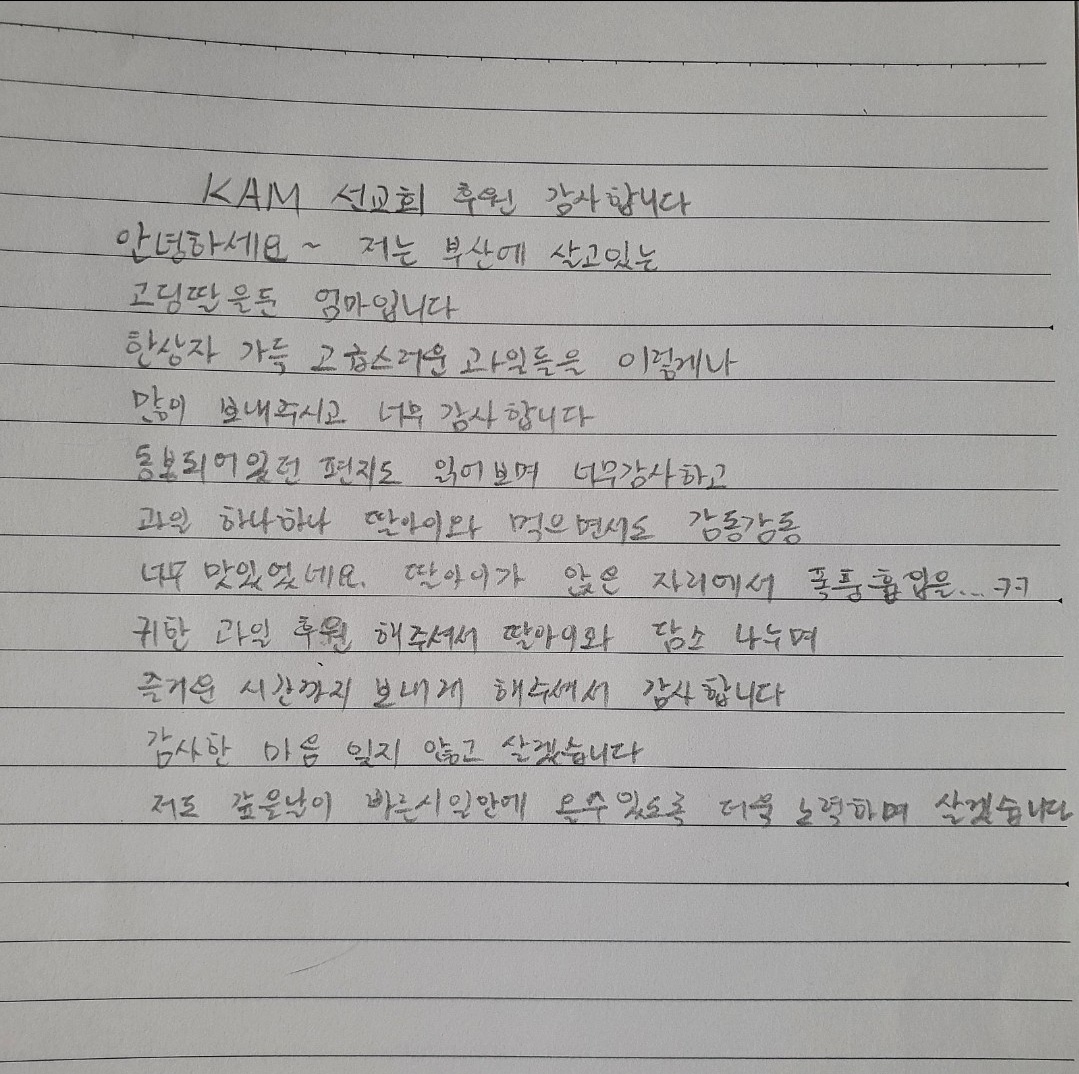 KAM 선교회 후원 감사합니다
안녕하세요~ 저는 부산에 살고있는
고딩딸을둔 엄마입니다
한상자 가득 고급스러운 과일들을 이렇게나
많이 보내주시고 너무 감사합니다
동보되어있던 편지도 읽어보며 너무감사하고
과일 하나하나 딸아이와 먹으면서도 감동감동
너무 맛있었네요. 딸아이가 앉은 자리에서 폭풍흡입을... ㅋㅋ
귀한 과일 후원 해주셔서 딸아이와 담소 나누며
즐거운 시간까지 보내게 해주셔서 감사합니다
감사한 마음 잊지 않고 살겠습니다
저도 갚을날이 바른시일안에 올수있도록 더욱 노력하며 살겠습니다